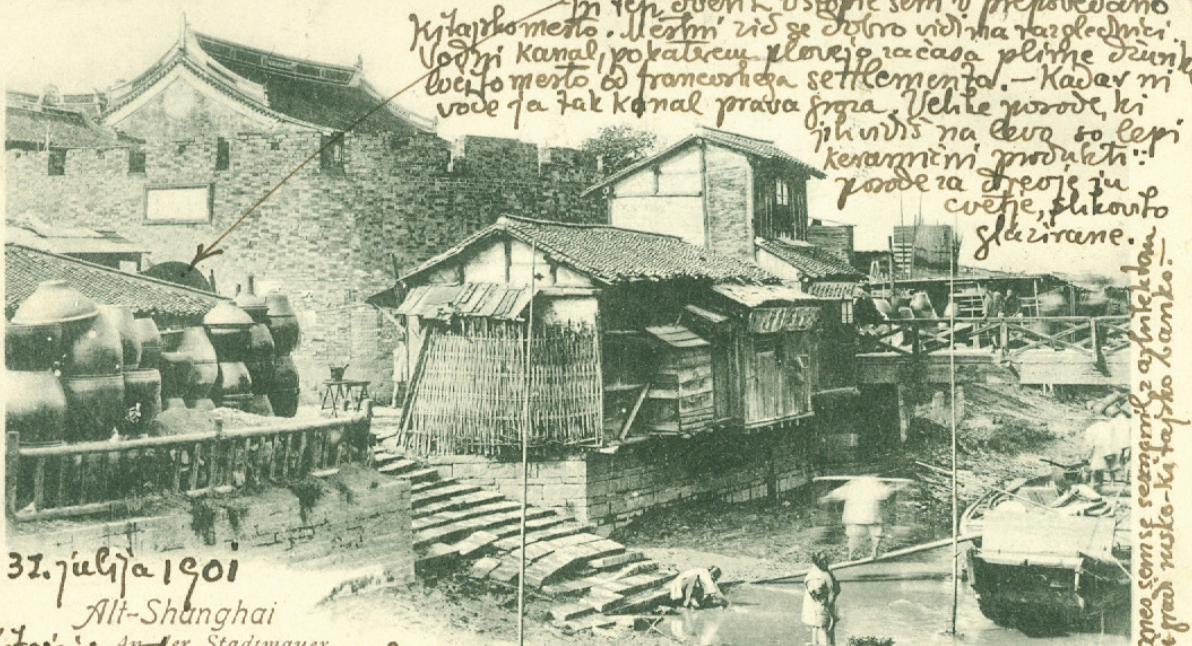 vstopil sem v prepovedano
Kitajsko mesto. Mestni zid se dobro vidi na razglednici.
Vodni kanal, po katerem plovejo za časa plime džunke
loči to mesto od francoskega settlementa. — Kadar ni
vode je tak kanal prava groza. Velike posode, ki
jih vidiš na levo so lepi
keramični produkti:
posode za drevje in
cvetje, slikovito
glazirane.
sem se seznanil z arhitektom
gradi rusko-kitajsko banko.—
31. julija 1901
Alt-Shanghai
An der Stadtmauer